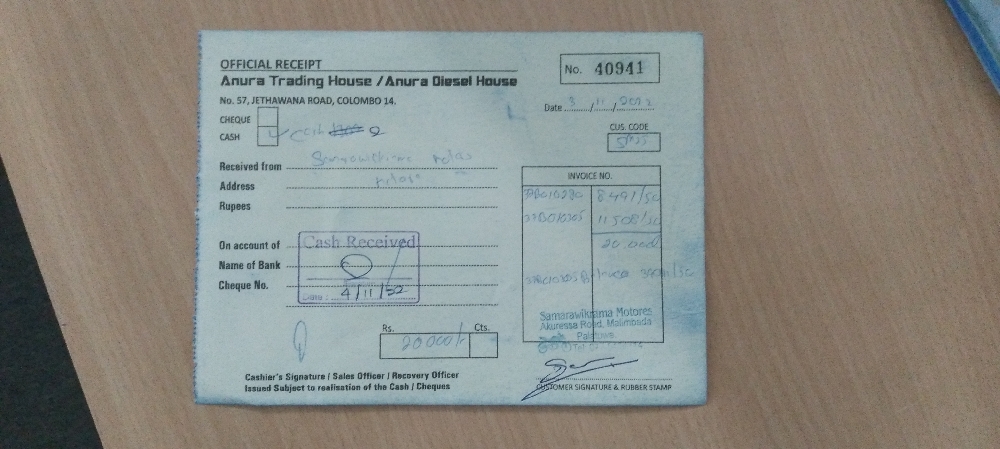 OFFICIAL RECEIPT
Anura Trading House / Anura Diesel House
No. 57, JETHAWANA ROAD, COLOMBO 14.
No. 40941
Date 3/11/2022
CHEQUE
CASH Cash
CUS. CODE
Received from Samarawickrama
Address
Rupees
INVOICE NO.
8491/50
11508/50
20 000/
On account of
Name of Bank
Cheque No.
Cash Received
Date : 4/11/32
Samarawikrama Motores
Akuressa Road, Malimbada
Palatuwa
Rs. Cts.
20 000/-
Cashier's Signature / Sales Officer / Recovery Officer
Issued Subject to realisation of the Cash / Cheques
CUSTOMER SIGNATURE & RUBBER STAMP